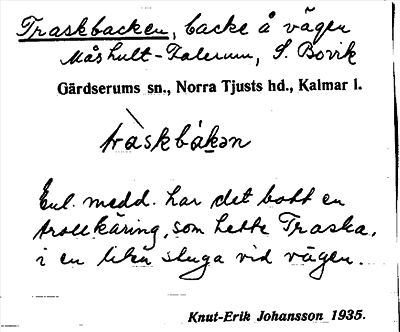 Traskbacken, backe å vägen
Måshult-Falerum, S. Bovik
Gärdserums sn., Norra Tjusts hd., Kalmar l.
tràskbákən
Enl. medd. har det bott en
trollkäring, som hette Traska,
i en liten stuga vid vägen.
Knut-Erik Johansson 1935.